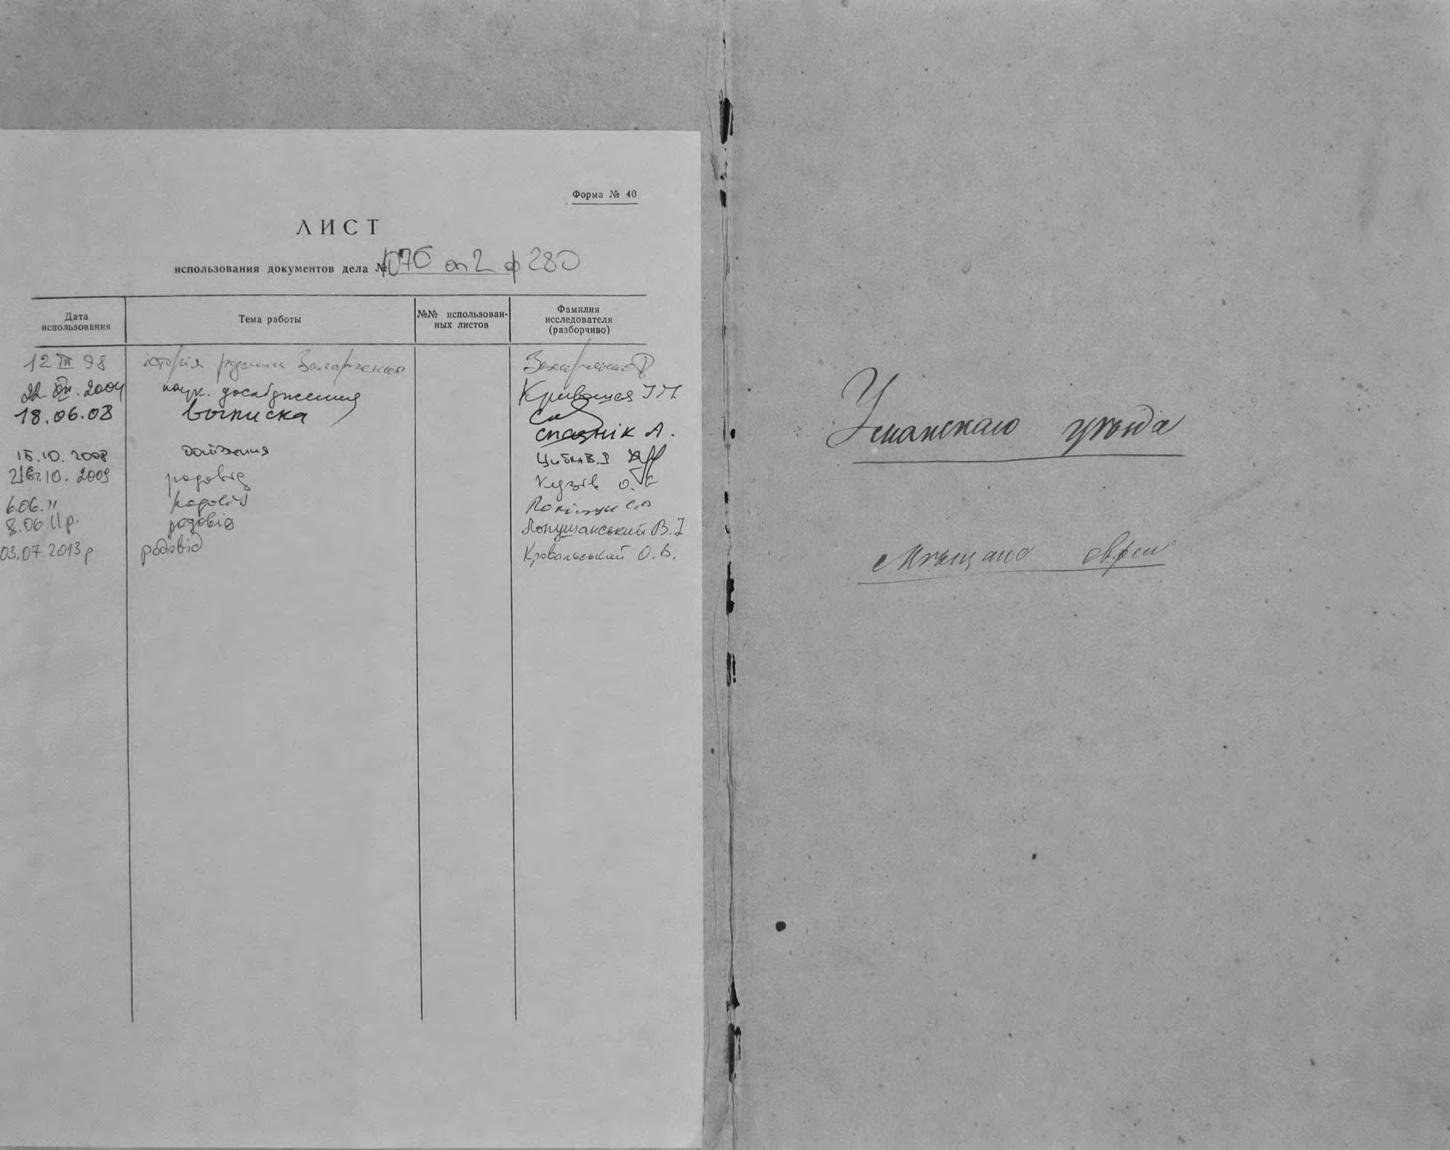 Форма № 40
ЛИСТ
использования документов дела № 1076 оп 2 ф 280
Дата использования
Тема работы
№№ использован-
ных листов
Фамилия
исследователя
(разборчиво)
12 III 98 історія родини Захарченко
22. . 2004 наук. дослідження Кривошея
18.06.03 выписка
15.10. 2008
10. 2009 родовід Кузів О.
6.06. " родовід
8.06 11 р. родовід Лопушанський В. І
03.07.2013 р родовід Кровальський О.В.
Уманскаго уѣзда
Мѣщане евреи